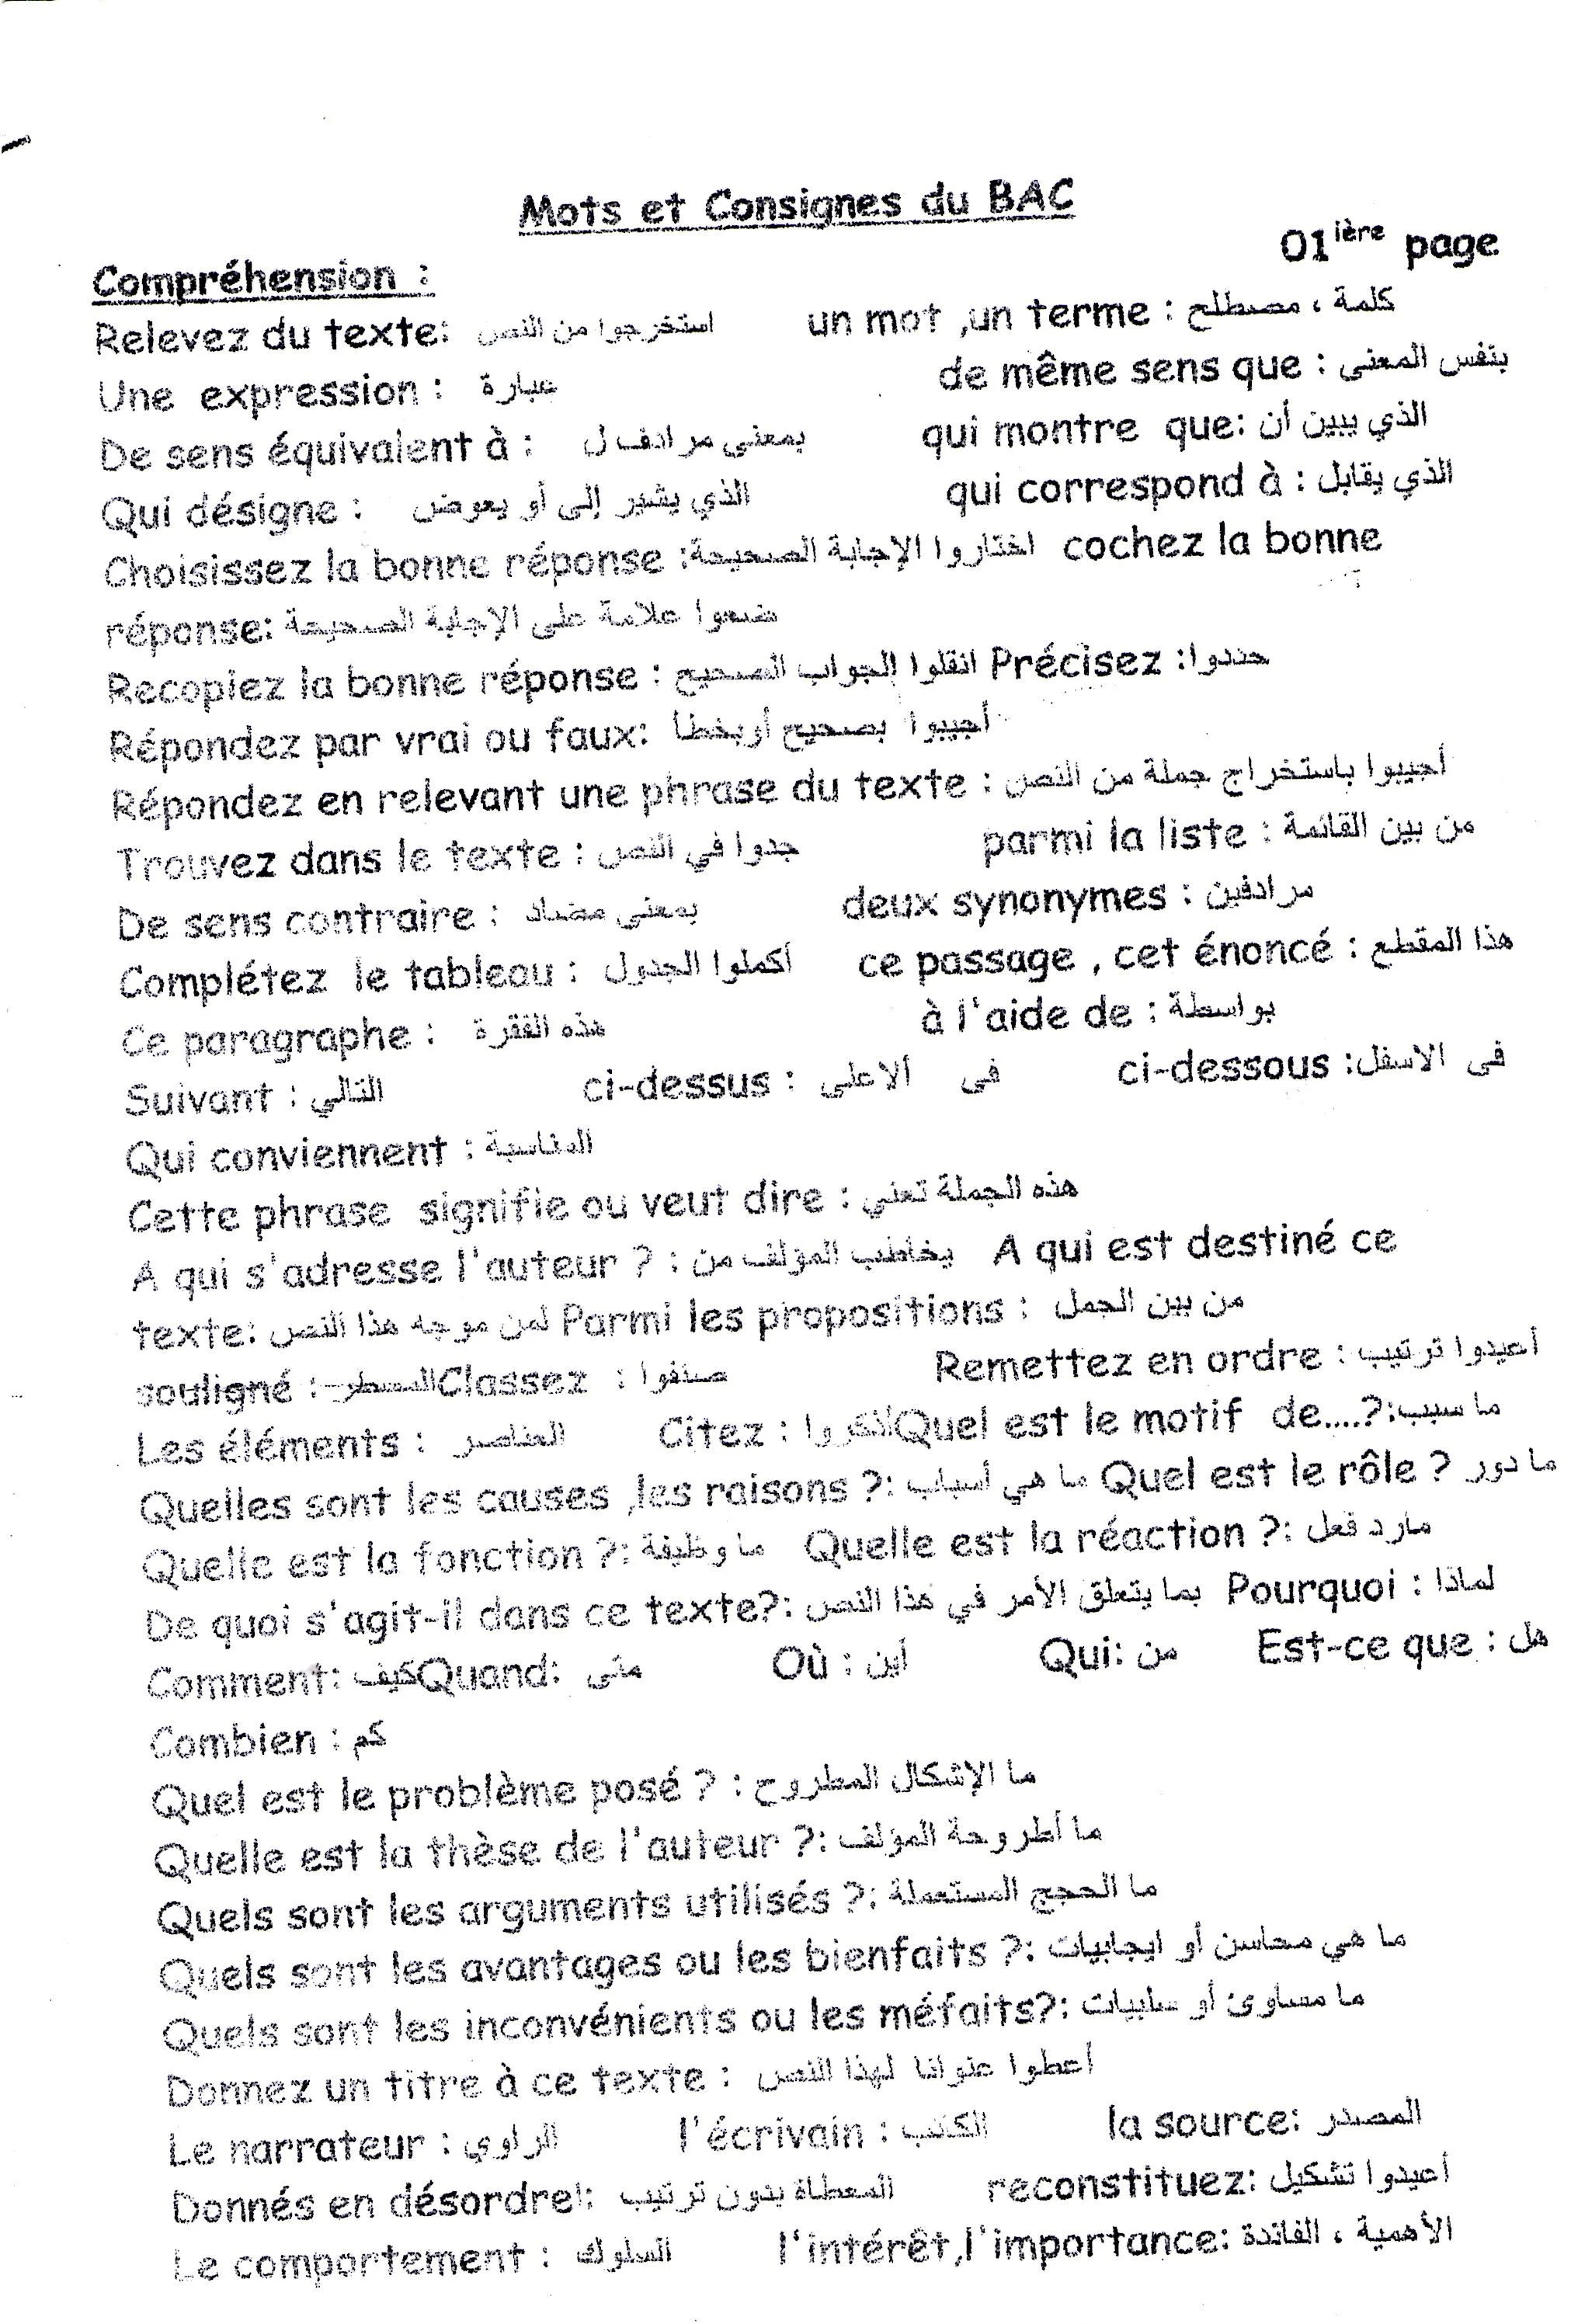 Mots et Consignes du BAC
01ière page
Compréhension :
Relevez du texte: استخرجوا من النص un mot ,un terme : كلمة ، مصطلح
Une expression : عبارة de même sens que : بنفس المعنى
De sens équivalent à : بمعنى مرادف ل qui montre que: الذي يبين أن
Qui désigne : الذي يشير إلى أو يعوض qui correspond à : الذي يقابل
Choisissez la bonne réponse :اختاروا الإجابة الصحيحة cochez la bonne
réponse: ضعوا علامة على الإجابة الصحيحة
Recopiez la bonne réponse : انقلوا الجواب الصحيح Précisez :حددوا
Répondez par vrai ou faux: أجيبوا بصحيح أوبخطأ
Répondez en relevant une phrase du texte : أجيبوا باستخراج جملة من النص
Trouvez dans le texte : جدوا في النص parmi la liste : من بين القائمة
De sens contraire : بمعنى مضاد deux synonymes : مرادفين
Complétez le tableau : أكملوا الجدول ce passage , cet énoncé : هذا المقطع
Ce paragraphe : هذه الفقرة à l'aide de : بواسطة
Suivant : التالي ci-dessus : فى ألاعلى ci-dessous :فى الاسفل
Qui conviennent : المناسبة
Cette phrase signifie ou veut dire : هذه الجملة تعني
A qui s'adresse l'auteur ? : يخاطب المؤلف من A qui est destiné ce
texte: لمن موجه هذا النص Parmi les propositions : من بين الجمل
souligné : المسطر Classez : صنفوا Remettez en ordre : أعيدوا ترتيب
Les éléments : العناصر Citez : أذكروا Quel est le motif de....?:ما سبب
Quelles sont les causes ,les raisons ?: ما هي أسباب Quel est le rôle ? ما دور
Quelle est la fonction ?: ما وظيفة Quelle est la réaction ?: مارد فعل
De quoi s'agit-il dans ce texte?: بما يتعلق الأمر في هذا النص Pourquoi : لماذا
Comment: كيف Quand: متى Où : أين Qui: من Est-ce que : هل
Combien : كم
Quel est le problème posé ? : ما الإشكال المطروح
Quelle est la thèse de l'auteur ?: ما أطروحة المؤلف
Quels sont les arguments utilisés ?: ما الحجج المستعملة
Quels sont les avantages ou les bienfaits ?: ما هي محاسن أو ايجابيات
Quels sont les inconvénients ou les méfaits?: ما مساوئ أو سلبيات
Donnez un titre à ce texte : أعطوا عنوانا لهذا النص
Le narrateur : الراوي l'écrivain : الكاتب la source: المصدر
Donnés en désordre!: المعطاة بدون ترتيب reconstituez: أعيدوا تشكيل
Le comportement : السلوك l'intérêt,l'importance: الأهمية ، الفائدة